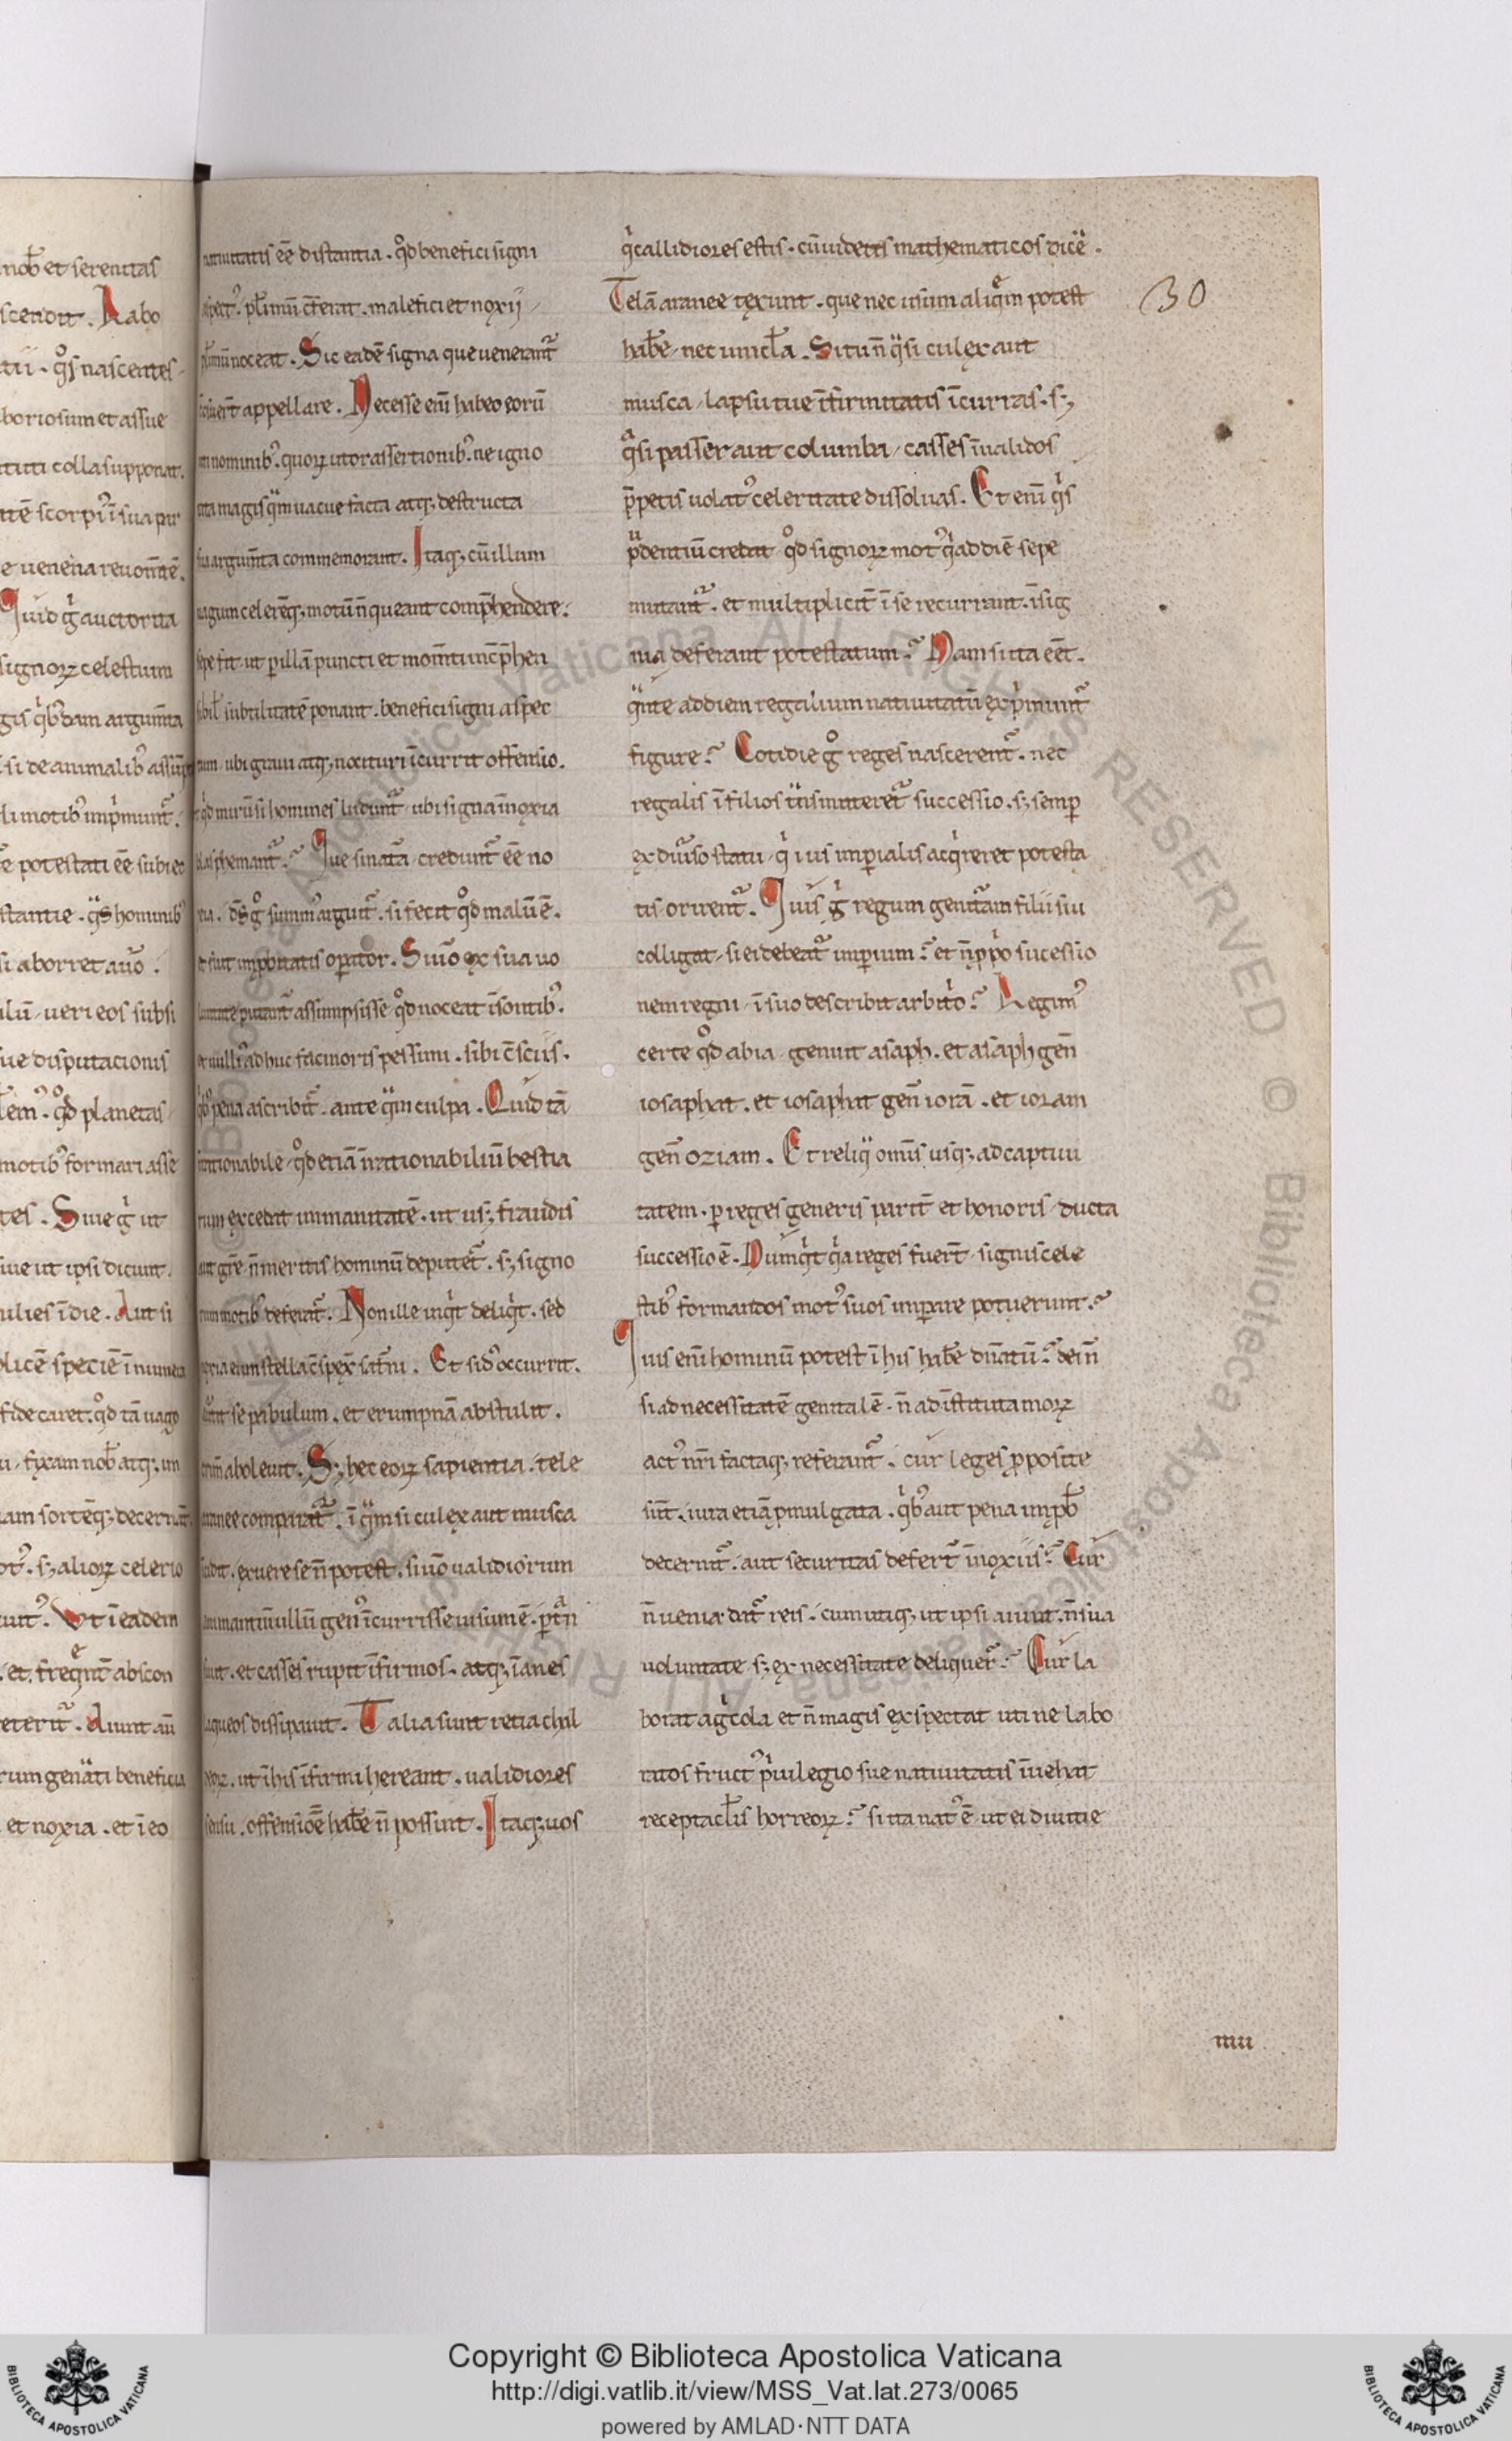 nob̄ et serenitas
scendit . Rabo
tii . qͦs nascentes
boriosum et assue
tuti colla supponat.
tē scorpiꝰ ī sua par
e venena reuom̄tē.
Quid gͥ auctorita
signoꝝ celestium
gis qͥbꝰdam argum̄ta
si de animalibꝰ assūp
li motibꝰ imp̄munt᷑.
ē potestati eē subiec
stantie . qͣs hominibꝰ
si aborret a uͦo .
lū ueri eos subsi
ue disputacionis
qͦd planetas
motibꝰ formari asse
tes . Siue gͥ ut
iue ut ipsi dicunt.
ulies ī die . Aut si
plicē speciē ī numera
fide caret. qͦd tā uago
fixam nob̄ atqꝫ im
am sortēqꝫ decernūt.
otꝰ. sꝫ alioꝝ celerio
uitꝰ. Vt ī eadem
. et freqͤnt̄ abscon
eterit᷑ . Aiunt aū
rum genāti beneficia
et noxia . et ī eo
natiuitatis eē distantia . qͦd benefici signi
aspectꝰ. pl̄imū c̄ferat . malefici et noxij
pl̄imū noceat . Sic eadē signa que uenerant᷑
soluer̄t appellare . Necesse eni̅ habeo eorū
nominibꝰ. quoꝝ utor assertionibꝰ. ne igno
rata magis qͣm uacue facta atqꝫ destructa
sua argum̄ta commemorant . Itaqꝫ cū illum
uagum celerēqꝫ motū n̄ queant comp̄hendere.
sepe fit ut ꝑ illā puncti et mom̄ti inc̄p̄hen
sibil̄ subtilitatē ponant . benefici signi aspec
tum . ubi graui atqꝫ nocituri īcurrit offensio.
qͥd mirū si homines ludunt᷑ ubi signa īnoxia
blasphemant᷑ .᷑ Que si nat̄a credunt᷑ eē no
xia . d̄s gͦ summꝰ arguit᷑ . si fecit qͦd malū ē.
et fuit improbitatis oꝑator . Si uͦo ex sua uo
luntate putant̄ assumpsisse qͦd noceat īsontibꝰ.
et nulliꝰ adhuc facinoris pessimi . sibi c̄sciis .
qͥbꝰ pena ascribit᷑ . ante qͣm culpa . Quid tā
irrationabile qͦd etiā īrrationabiliū bestia
rum excedit immanitatē . ut usꝫ fraudis
aut gr̄e n̄ meritis hominū deputet᷑ . sꝫ signo
rum motibꝰ deferat᷑ . Non ille inqͥt deliqͥt . sed
noxia eum stella c̄spex̄ sat᷑ni . Et sidꝰ occurrit .
se pabulum . et erumpnā abstulit .
aboleuit . Sꝫ hec eoꝝ sapientia . tele
aranee comparat᷑ . ī qͣm si culex aut musca
incidit . exuere se n̄ potest . si uͦo ualidiorum
animantiū ullū genꝰ īcurrisse uisum ē . ꝑtͣn
siuit . et casses rupit īfirmos . atqꝫ īanes
laqueos dissipauit . Talia sunt retia chal
deoꝝ . ut ī his īfirmi hereant . ualidiores
sensu . offensiōē hab̄e n̄ possint . Itaqꝫ uos
qͥ callidiores estis . cū uidetis mathematicos dicē̄ .
Telā aranee texunt . que nec usum aliqͤm potest
hab̄e nec uincl̄a . Si tu n̄ qͣsi culex aut
musca lapsu tue īfirmitatis īcurras . sꝫ
qͣsi passer aut columba casses īualidos
p̄petis uolatꝰ celeritate dissoluas . Et eni̅ qͥs
pͣdentiū credat qͦd signoꝝ motꝰ qͥ ad diē sepe
mutant᷑ . et multiplicit̄ ī se recurrant . īsig
nia deferant potestatum .᷑ Nam si ita eēt .
qͣnte ad diem regalium natiuitatū exp̄munt᷑
figure .᷑ Cotidie gͦ reges nascerent᷑ . nec
regalis ī filios tͣnsmitteret᷑ successio . sꝫ semꝑ
ex diu̅so statu qͥ ius impialis acqͥreret potesta
tis orirent᷑ . Quis gͥ regum genitͣam filii sui
colligat si ei debeat᷑ impium .᷑ et n̄ pp̄o sucessio
nem regni ī suo describit arbitͥo .᷑ Legimꝰ
certe qͦd abia genuit asaph . et asaph gen̄
iosaphat . et iosaphat gen̄ iorā . et ioram
gen̄ oziam . Et reliqͣ om̄s usqꝫ ad captiui
tatem . ꝑ reges generis parit̄ et honoris ducta
successio ē . Numqͥt qͥa reges fuer̄t signis cele
stibꝰ formandos motꝰ suos impare potuerunt .᷑
Quis eni̅ hominū potest ī his hab̄e dn̄atū .᷑ dein̄
si ad necessitatē genitalē n̄ ad īstituta moꝝ
actꝰ nr̄i factaqꝫ referant᷑ . cur leges ꝓposite
sūt . iura etiā ꝓmulgata . qͥbꝰ aut pena improb̄
decernit᷑ . aut securitas defert᷑ īnoxiis .᷑ Cur
n̄ uenia dat᷑ reis . cum utiqꝫ ut ipsi aiunt . n̄ sua
uoluntate sꝫ ex necessitate deliquer̄ .᷑ Cur la
borat agͥcola et n̄ magis exspectat uti ne labo
ratos fructꝰ pͥuilegio sue natiuitatis īuehat
receptacl̄is horreoꝝ .᷑ si ita natꝰ ē ut ei diuitie
30
iiii
Copyright © Biblioteca Apostolica Vaticana
http://digi.vatlib.it/view/MSS_Vat.lat.273/0065
powered by AMLAD·NTT DATA